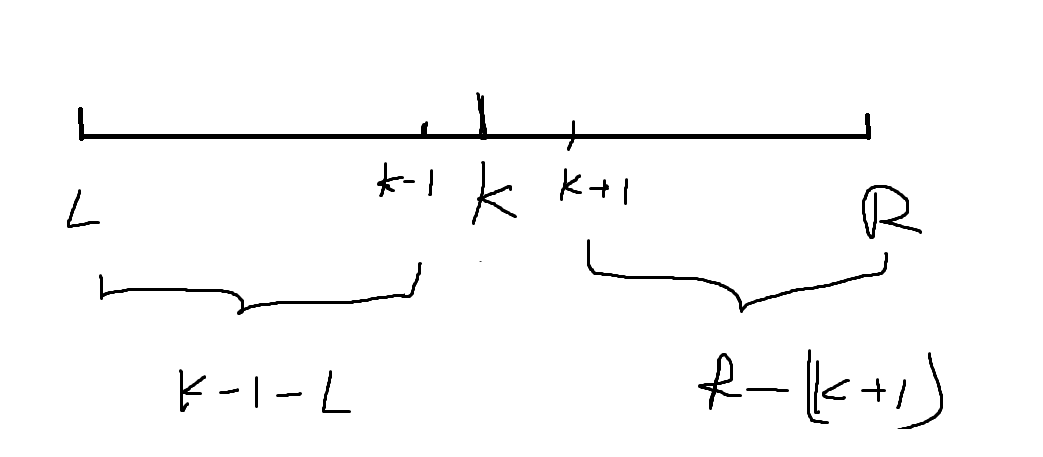 L k-1 K K+1 R
K-1-L R-(K+1)